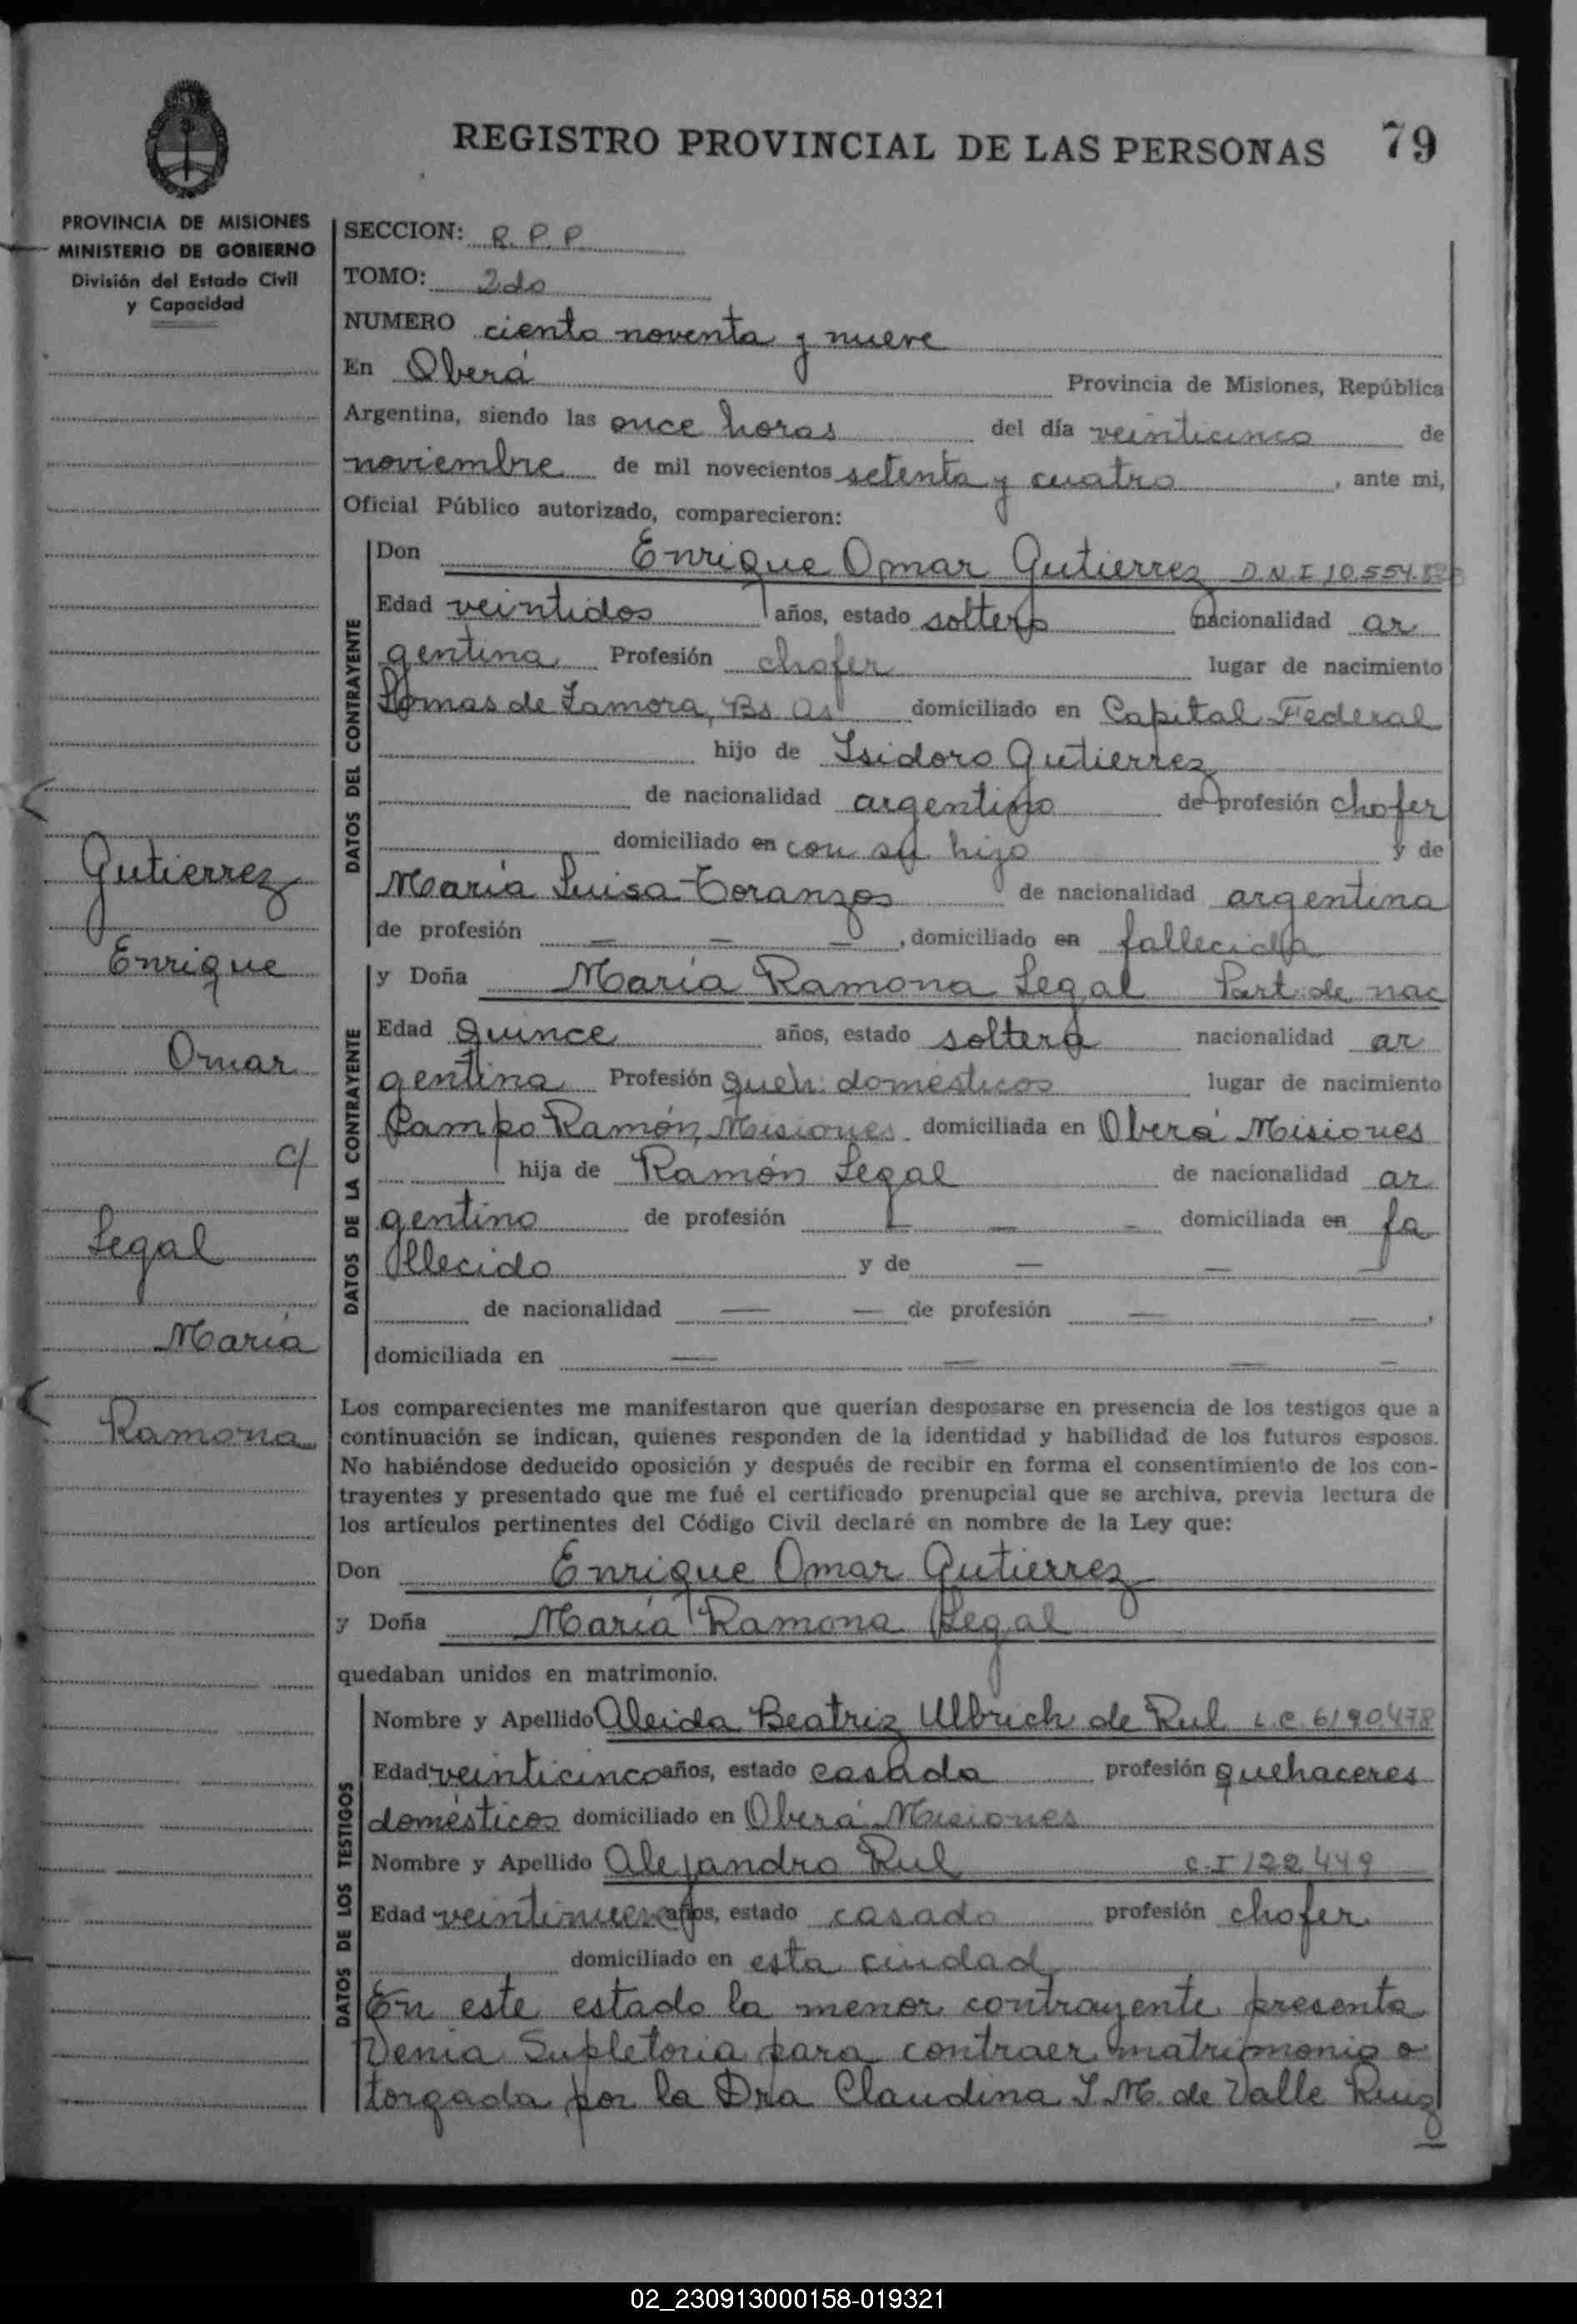 REGISTRO PROVINCIAL DE LAS PERSONAS 79
PROVINCIA DE MISIONES
MINISTERIO DE GOBIERNO
División del Estado Civil
y Capacidad
Gutierrez
Enrique
Omar
c/
Legal
María
Ramona
SECCION: R. P. P.
TOMO: 2do
NUMERO ciento noventa y nueve
En Oberá Provincia de Misiones, República
Argentina, siendo las once horas del día veinticinco de
noviembre de mil novecientos setenta y cuatro, ante mi,
Oficial Público autorizado, comparecieron:
DATOS DEL CONTRAYENTE
Don Enrique Omar Gutierrez D.N.I 10.554.
Edad veintidos años, estado soltero nacionalidad ar
gentina Profesión chofer lugar de nacimiento
Lomas de Zamora, Bs As domiciliado en Capital Federal
hijo de Isidoro Gutierrez
de nacionalidad argentino de profesión chofer
domiciliado en con su hijo y de
María Luisa Toranzos de nacionalidad argentina
de profesión — — —, domiciliado en fallecida
DATOS DE LA CONTRAYENTE
y Doña María Ramona Legal Part. de nac
Edad quince años, estado soltera nacionalidad ar
gentina Profesión queh. domésticos lugar de nacimiento
Campo Ramón, Misiones domiciliada en Oberá Misiones
hija de Ramón Legal de nacionalidad ar
gentino de profesión — — — domiciliada en fa
llecido y de — — —
de nacionalidad — — de profesión — —,
domiciliada en — — — —
Los comparecientes me manifestaron que querían desposarse en presencia de los testigos que a
continuación se indican, quienes responden de la identidad y habilidad de los futuros esposos.
No habiéndose deducido oposición y después de recibir en forma el consentimiento de los con-
trayentes y presentado que me fué el certificado prenupcial que se archiva, previa lectura de
los artículos pertinentes del Código Civil declaré en nombre de la Ley que:
Don Enrique Omar Gutierrez
y Doña María Ramona Legal
quedaban unidos en matrimonio.
DATOS DE LOS TESTIGOS
Nombre y Apellido Aleida Beatriz Ulbrich de Rul L.C. 6190478
Edad veinticinco años, estado casada profesión quehaceres
domésticos domiciliado en Oberá Misiones
Nombre y Apellido Alejandro Rul C.I 122449
Edad veintinueve años, estado casado profesión chofer
domiciliado en esta ciudad
En este estado la menor contrayente presenta
Venia Supletoria para contraer matrimonio o
torgada por la Dra Claudina I. M. de Valle Ruiz
02_230913000158-019321